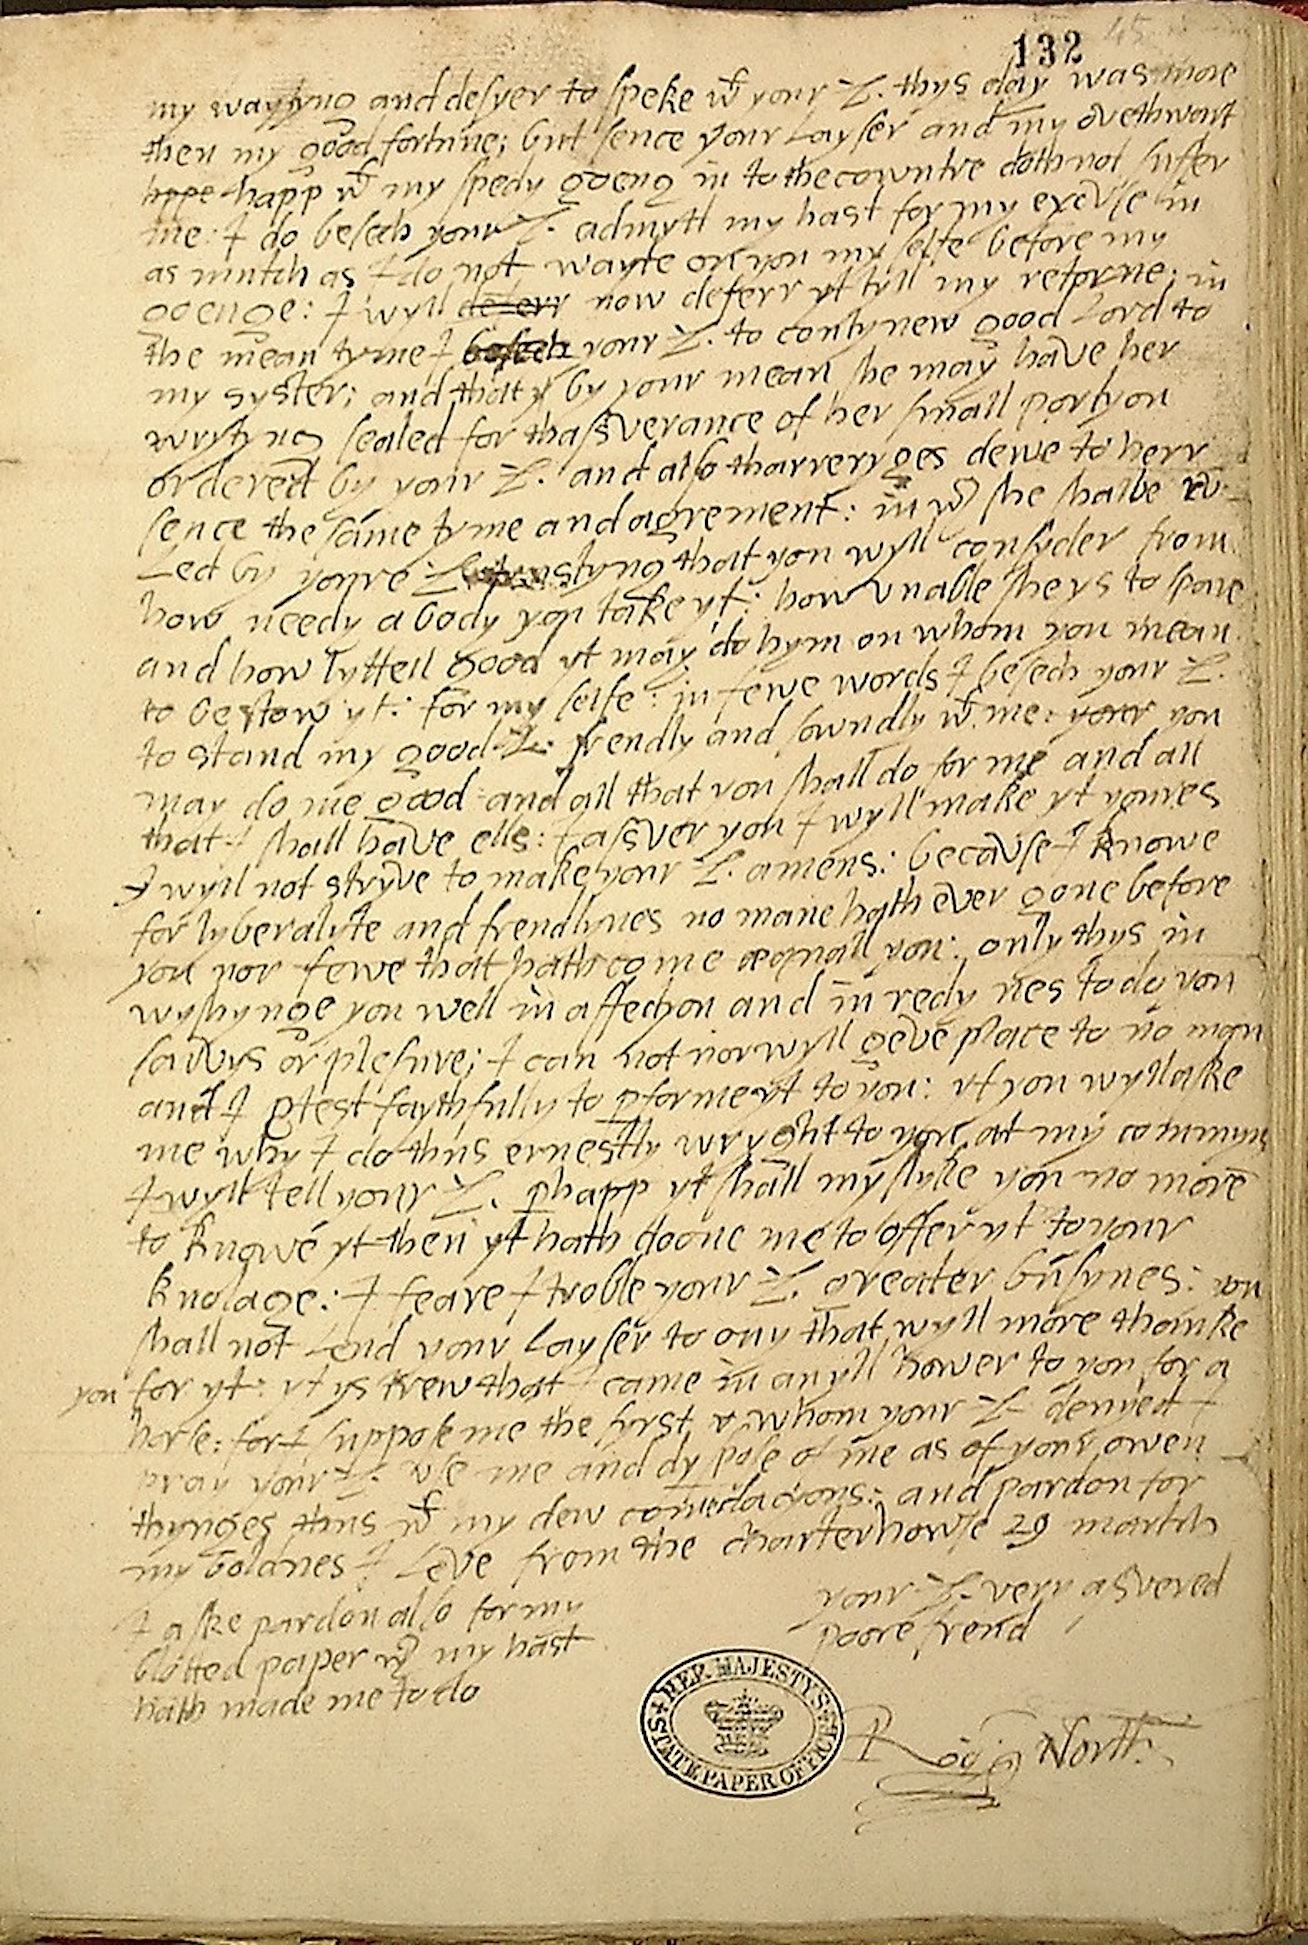 132
my waytyng and desyer to speke wt your L. thys day was more
then my good fortune; but sence your Layser and my ovethwart
happ wt my spedy goeng in to the cowntre doth not suffer
me: I do besech your L. admytt my hast for my excuse in
as mutch as I do not wayte on you my selfe before my
goenge: I wyll deferr now deferr yt tyll my retorne; in
the mean tyme I besech your L. to contynew good Lord to
my syster; and that by your mean she may have her
wrytyng sealed for thassverance of her small portyon
ordered by your L. and also tharreryges dewe to herr
sence the same tyme and agrement: in wch she shalbe ru-
Led by youre L. trustyng that you wyll consyder from
how needy a body you take yt: how unable she ys to spare
and how lyttell good yt may do hym on whom you mean
to bestow yt: For my selfe: in fewe words I besech your L.
to stand my good L: frendly and sowndly wt me: your you
may do me good and all that you shall do for me and all
that I shall have ells: I assver you I wyll make yt youres
I wyll not stryve to make your L. amens: because I knowe
for lyberalyte and frendlynes no mane hath ever gone before
you nor fewe that hath come æquall you: only thys in
wyshynge you well in affectyon and in redynes to do you
sarvys or plesure; I can not nor wyll geve place to no man
and I ptest faythfully to pforme yt to you: yf you wyll aske
me why I do thus ernestly wryght to you, at my commyng
I wyll tell your L. phapp yt shall myslyke you no more
to knowe yt then yt hath doone me to offer yt to your
knolage: I feare I troble your L. greater busynes: you
shall not Lend your Layser to ony that wyll more thanke
you for yt: yt ys trew that I came in an yll hower to you for a
horse: for I suppose me the first whom your L. denyed I
pray your L. use me and dyspose of me as of your owen
thynges thus wt my dew comedacyons: and pardon for
my boldnes I Leve from the charterhowse 29 martch
your L. very asvered
poore frend
I aske pardon also for my
blotted paper wch my hast
hath made me to do
Rog: North
HER MAJESTY'S
STATE PAPER OFFICE